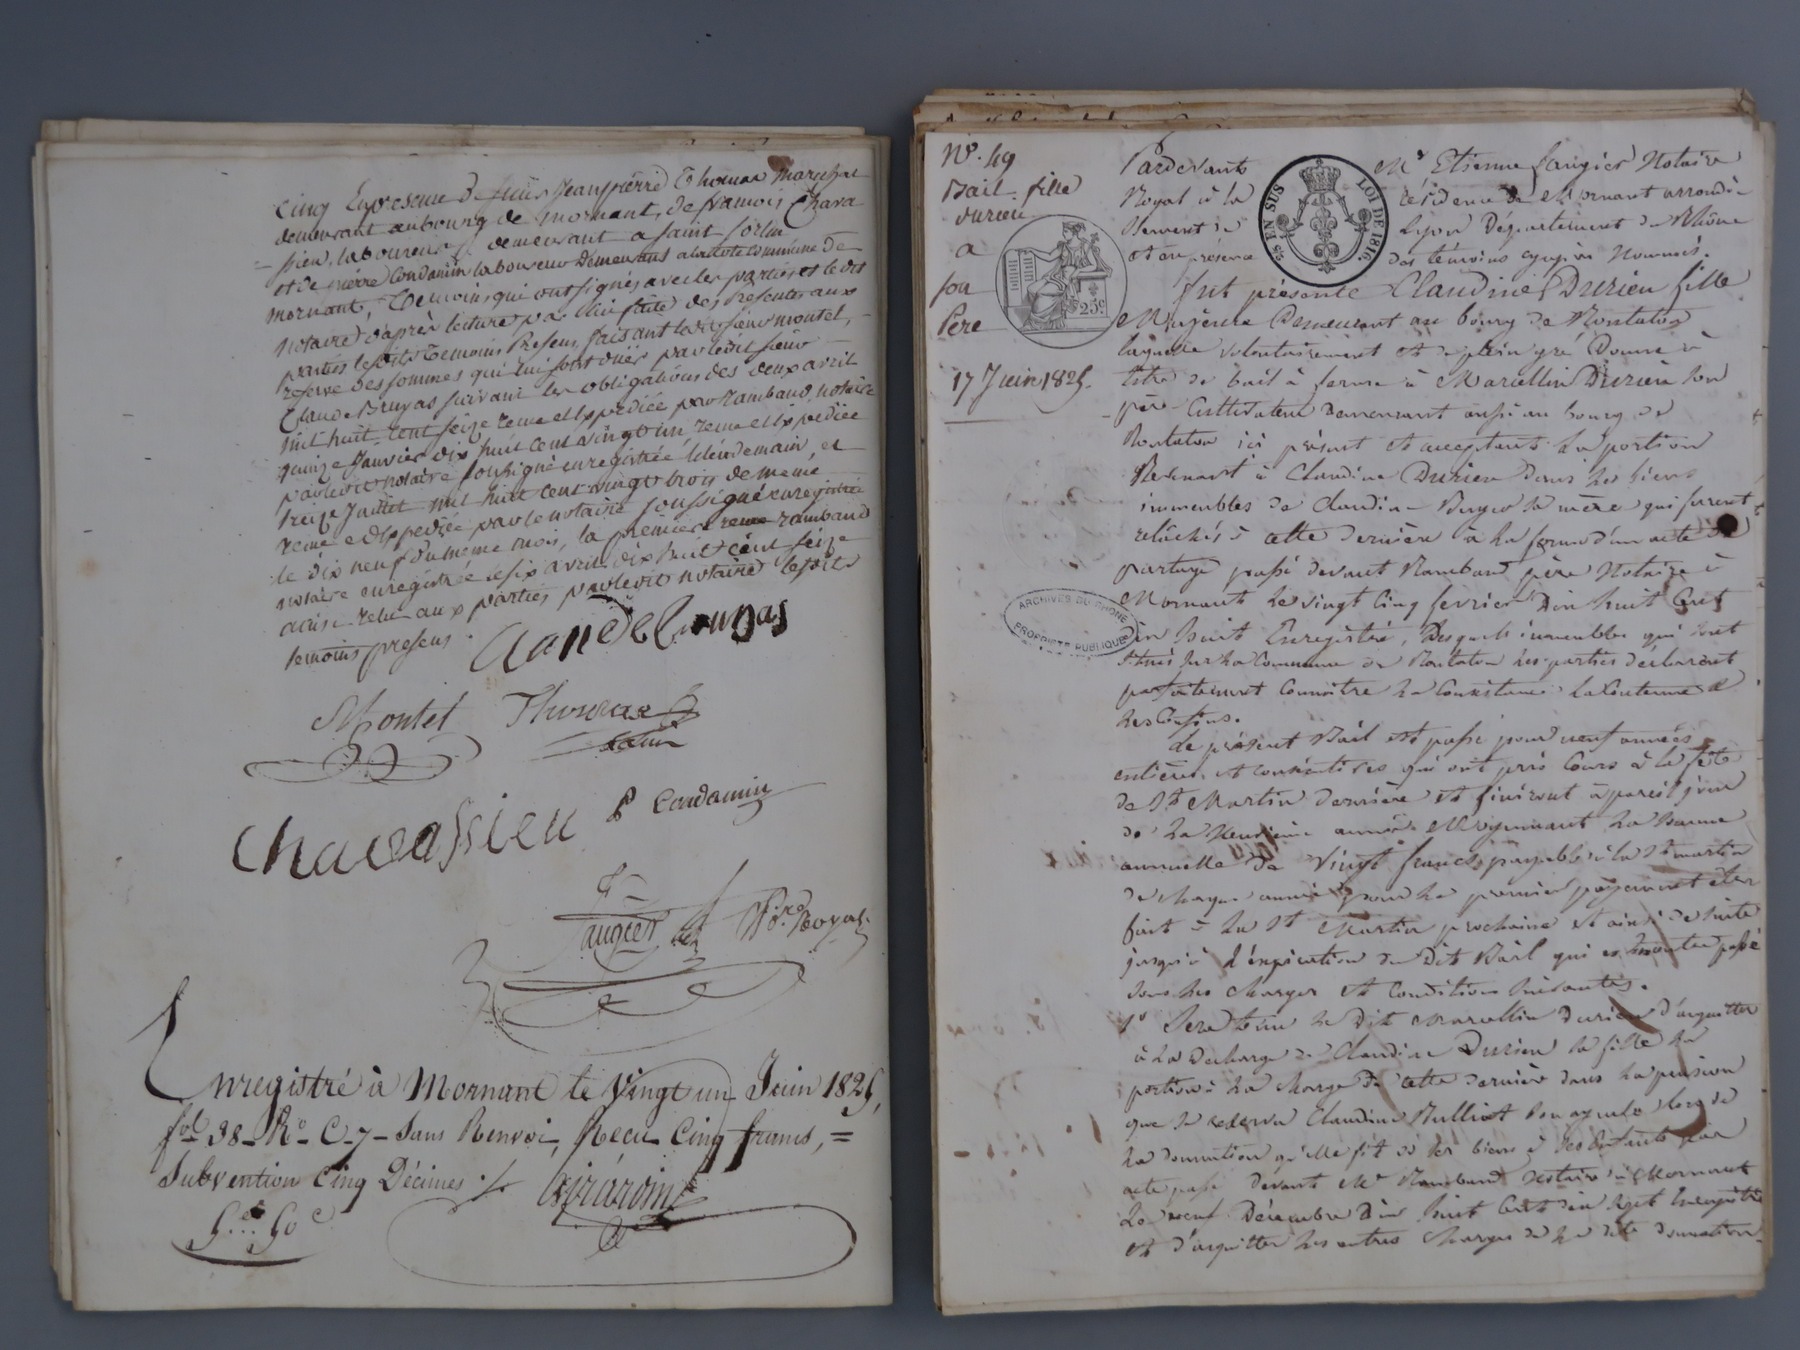 cinq En presence de sieurs Jeanpierre Thomas Marechal
demeurant au bourg de mornant, de francois Chava
-ssieu, laboureur demeurant a saint sorlin
et de pierre Condamin laboureur demeurans a ladite commune de
mornant, Temoins qui ont signés avec les parties et le dit
notaire d'après lecture par lui faite des Presentes aux
parties lesdits temoins Presens, faisant ledit sieur montet,
reserve des sommes qui lui sont dues par ledit sieur
Claude Bruyas suivant les obligations des deux avril
mil huit cent seize reçue et Expediée par Rambaud, notaire
quinze Janvier dix huit cent vingt un reçue et Expediée
par ledit notaire soussigné enregistrée lelendemain, et
treize Juillet mil huit cent vingt trois de meme
reçue et Expediée par le notaire soussigné enregistrée
le dix neuf du meme mois, la premiere reçue Rambaud
notaire enregistrée le six avril dix huit cent seize
aussi relu aux parties par ledit notaire lesdits
temoins presens.
Claude Bruyas
Montet Thomas
Chavassieu P Condamin
Faugier Nre Royal
Enregistré à Mornant le Vingt un Juin 1825,
fol 38 Ro C 7 Sans Renvoi, Recu Cinq francs, =
Subvention Cinq Décimes
5f 50c
No. 49
Bail fille
durieu
a
son
Pere
17 Juin 1825.
25 EN SUS LOI DE 1816.
25c
ARCHIVES DU RHONE
PROPRIETE PUBLIQUE
Pardevant Me Etienne Faugier Notaire
Royal à la résidence de Mornant arrondis
Lyon Département du Rhône
et en présence des témoins cy après Nommés.
fut présente Claudine Durieu fille
Majeure Demeurant au bourg de Rontalon
laquelle volontairement et de plein gré Donne à
titre de bail à ferme à Marcellin Durieu son
père Cultivateur Demeurant aussi au bourg de
Rontalon ici présent et acceptant la portion
Revenant à Claudine Durieu dans les biens
immeubles de Claudine Bruyas sa mère qui furent
relâchés à cette dernière à la forme d'un acte de
partage passé devant Rambaud père Notaire à
Mornant le vingt Cinq fevrier Dix huit Cent
Dix huit Enregistré, Desquels immeubles qui sont
situés sur la Commune de Rontalon les parties déclarent
parfaitement Connoître la Consistance la Contenue et
les Confins.
Le présent Bail est passé pour neuf années
entières et consécutives qui ont pris Cours à la fête
de St Martin dernière et finiront à pareil jour
de la neuvième année Moyennant la somme
annuelle de Vingt francs payable à la St martin
de chaque année pour le premier payement être
fait à la St Martin prochaine et ainsi de suite
jusqu'à l'expiration du Dit Bail qui est passé
sous les charges et Conditions suivantes.
1o Sera tenu le Dit Marcellin durieu d'acquitter
à la décharge de Claudine Durieu sa fille la
portion à la charge de cette dernière dans la pension
que se reserva Claudine Bulliot son ayeule lors de
la donnation qu'elle fit de ses biens à ses Enfants par
acte passé devant Me Rambaud Notaire à Mornant
le neuf Décembre Dix huit Cent dix sept Enregistré
et d'acquitter les autres charges de la dite donnation